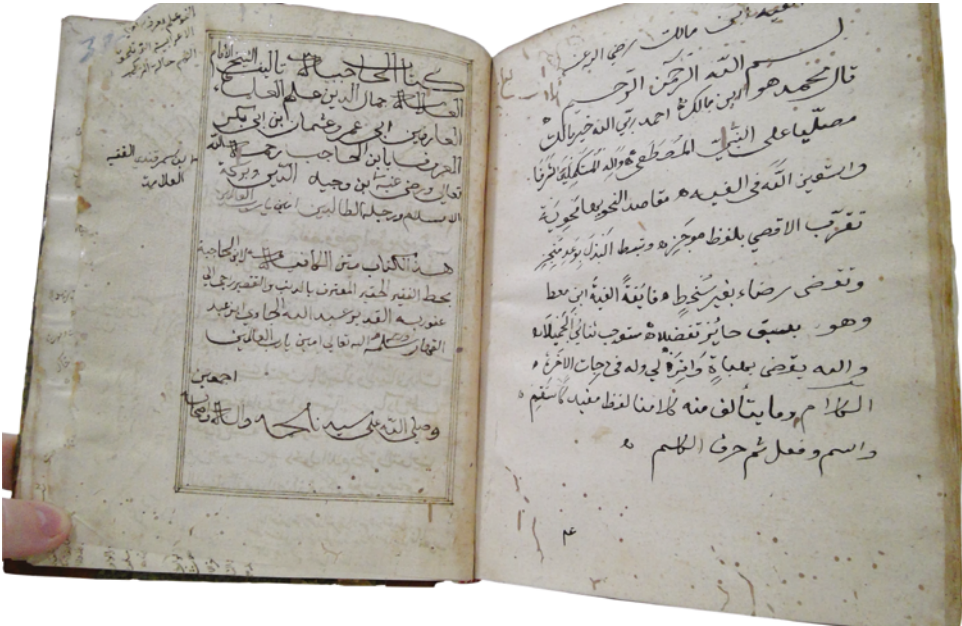 ابن مالك رضي الله عنه
بسم الله الرحمن الرحيم
قال محمد هو ابن مالك احمد ربي الله خير مالك
مصليا على النبي المصطفى واله المستكملين الشرفا
واستعين الله في الفيه مقاصد النحو بها محوية
تقرب الاقصي بلفظ موجز وتبسط البذل بوعد منجز
وتقتضي رضاء بغير سخط فايقة الفية ابن معط
وهو بسبق حايز تفضيلا مستوجب ثنائي الجميلا
والله يقضي بهباة وافرة لي وله في درجات الاخرة
الكلام وما يتالف منه كلامنا لفظ مفيد كاستقم
واسم وفعل ثم حرف الكلم
كتاب الحاجبية تاليف الشيخ الامام
العلامة جمال الدين علم العلماء
العارفين ابي عمرو عثمان ابن ابي بكر
المعروف بابن الحاجب رحمه الله
تعالي ورضي عنه ابن وجيه الدين وبركة
الاسلام ورحلة الطالبين امين يارب العالمين
هذا الكتاب متن الكافية لابن الحاجبة
بخط الفقير الحقير المعترف بالذنب والتقصير راجي الي
عفو ربه القدير عبد الله الحاوي ابن عبد
القهار رحمه الله تعالي امين يارب العالمين
اجمعين
وصلي الله علي سيدنا محمد واله وصحبه
ابن سمرقندي الفقيه
العلامة